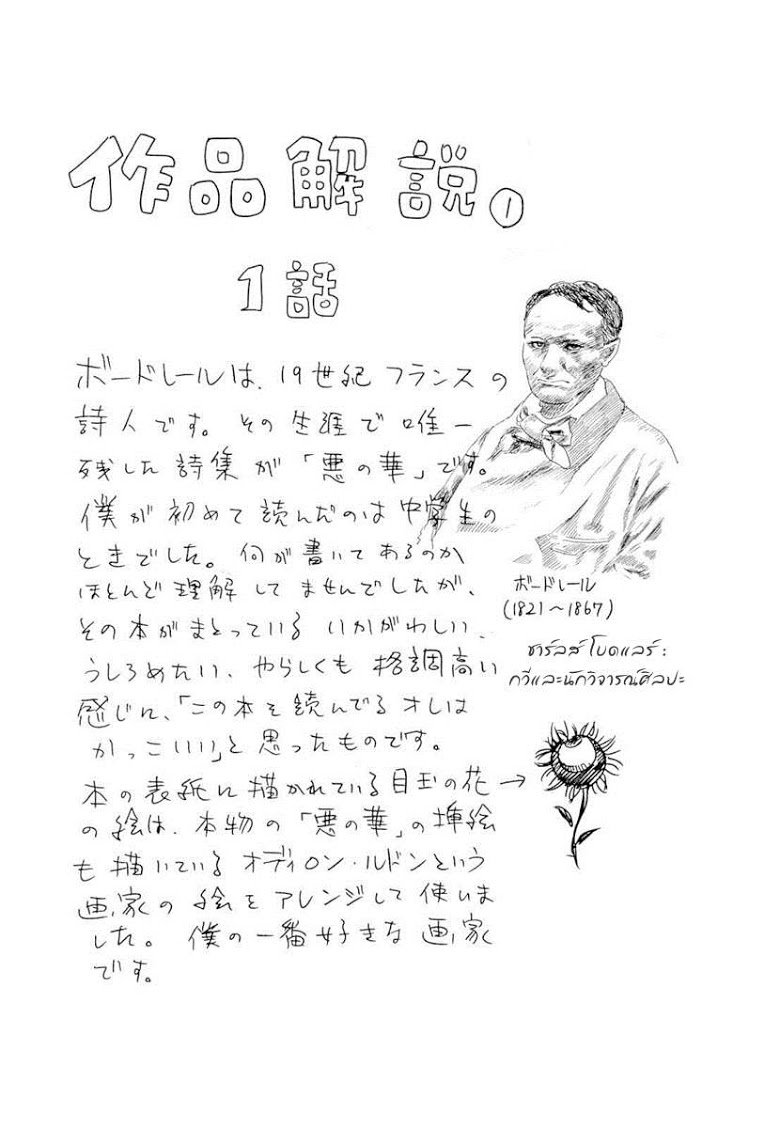 作品解説。①
1話
ボードレールは、19世紀フランスの
詩人です。その生涯で唯一
残した詩集が「悪の華」です。
僕が初めて読んだのは中学生の
ときでした。何が書いてあるのか
ほとんど理解してませんでしたが、
その本がまとっている いかがわしい、
うしろめたい、やらしくも格調高い
感じに、「この本を読んでるオレは
かっこいい」と思ったものです。
本の表紙に描かれている目玉の花→
の絵は、本物の「悪の華」の挿絵
も描いているオディロン・ルドンという
画家の絵をアレンジして使いま
した。僕の一番好きな画家
です。
ボードレール
(1821〜1867)
ชาร์ลส์ โบดแลร์:
กวีและนักวิจารณ์ศิลปะ